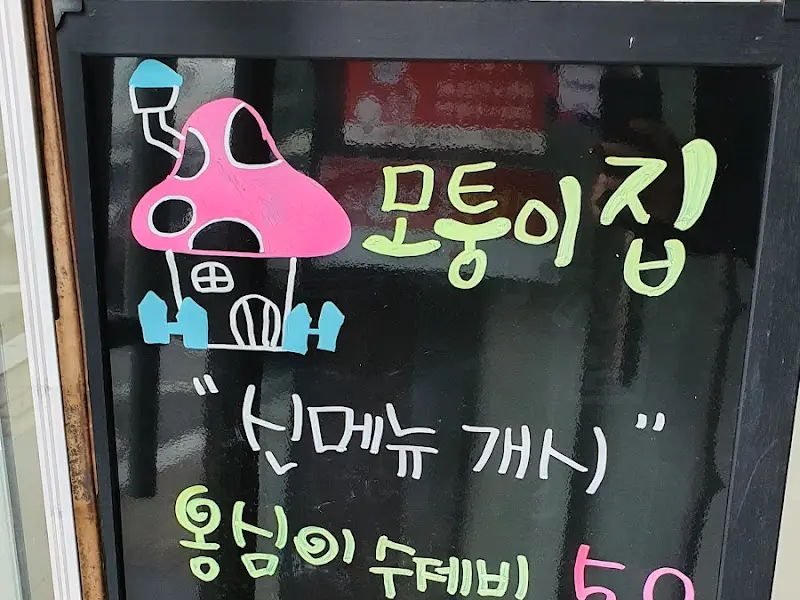 모퉁이집
"신메뉴 개시"
옹심이 수제비 50